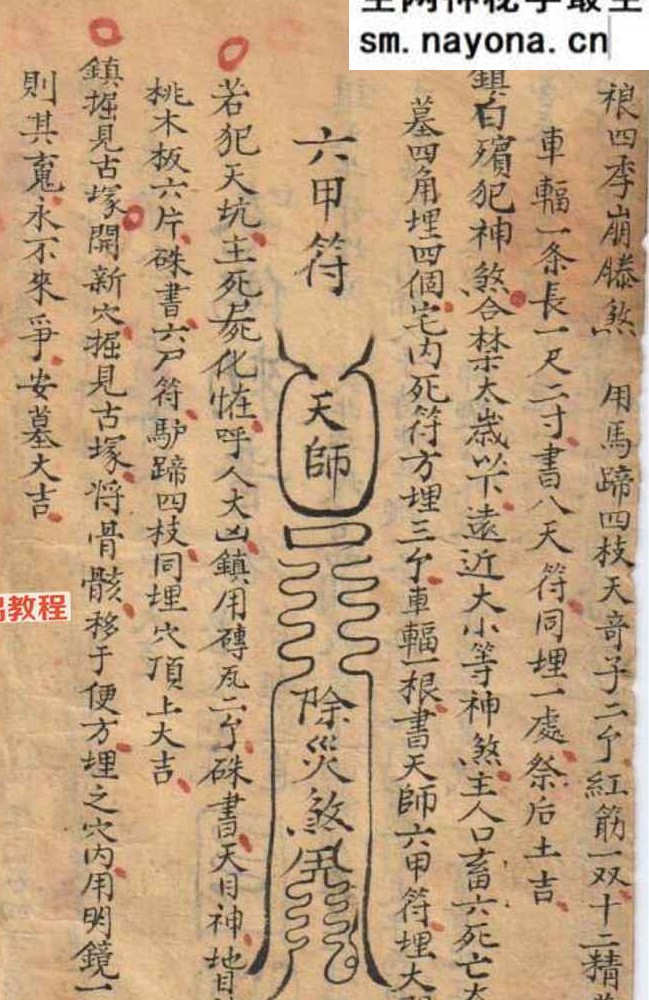 全网神秘学最全
sm.nayona.cn
四季崩騰煞 用馬蹄四枝天奇子二个紅筋一双十二精
車輻一条長一尺二寸書八天符同埋一處祭后土吉
鎮白殯犯神煞合禁太歲以下遠近大小等神煞主人口畜六死亡
墓四角埋四個宅内死符方埋三个車輻一根書天師六甲符埋大
六甲符
天師
除災煞鬼
若犯天坑主死屍化怪呼人大凶鎮用磚瓦二个硃書天目神地目
桃木板六片硃書六尸符馿蹄四枝同埋穴頂上大吉
鎮掘見古塚開新穴掘見古塚将骨骸移于便方埋之穴内用明鏡一
則其䰟永不來爭安墓大吉
教程